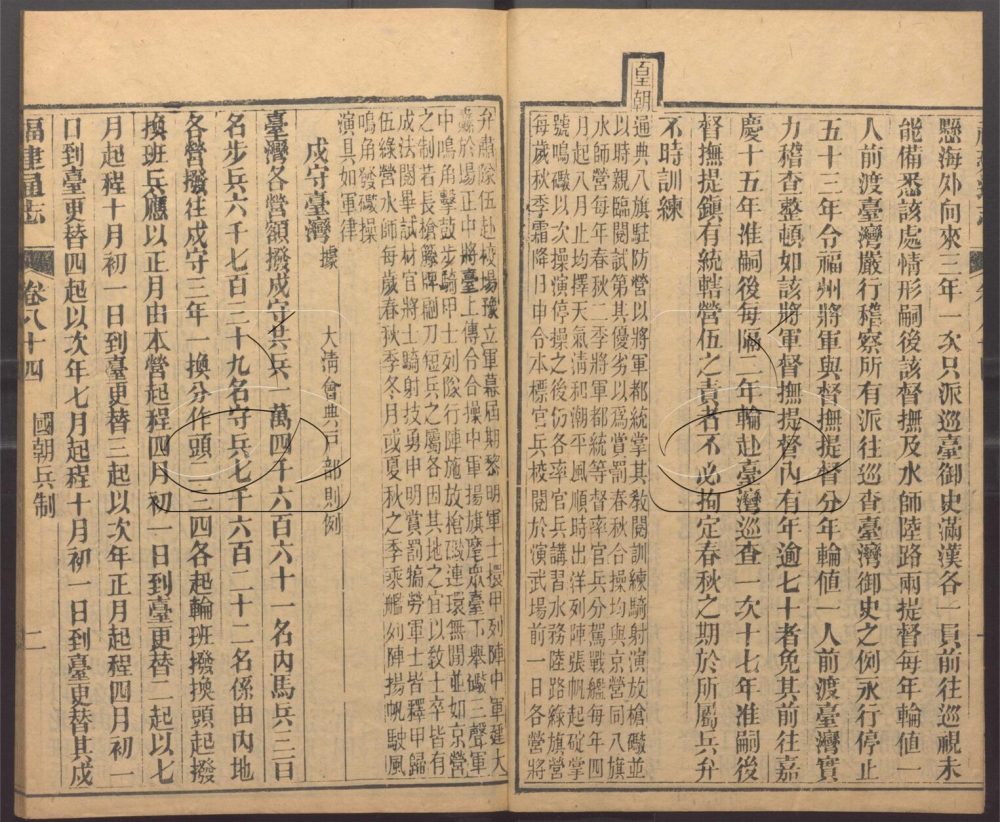 懸海外向來三年一次只派巡臺御史滿漢各一員前往巡視未
能備悉該處情形嗣後該督撫及水師陸路兩提督每年輪値一
人前渡臺灣嚴行稽察所有派往巡查臺灣御史之例永行停止
五十三年令福州將軍與督撫提督分年輪値一人前渡臺灣實
力稽查整頓如該將軍督撫提督內有年逾七十者免其前往嘉
慶十五年准嗣後每隔二年輪赴臺灣巡查一次十七年准嗣後
督撫提鎭有統轄營伍之責者不必拘定春秋之期於所屬兵弁
不時訓練
皇朝通典八旗駐防營以將軍都統掌其敎閱訓練騎射演放槍礮並
以時親臨閱試第其優劣以爲賞罰春秋合操均與京營同八旗
水師營每年春秋二季將軍都統等督率官兵分駕戰艦每年四
月起八月止均擇天氣淸和潮平風順時出洋列陣張帆起碇掌
號鳴礮以次操演停操之後仍各率官兵講習水務陸路綠旗營
每歲秋季霜降日申令本標官兵校閱於演武場前一日各營將
弁肅隊伍赴校場豫立軍幕屆期黎明軍士擐甲列陣中軍建大
纛於場正中將臺上傳令合操中軍揚旗麾衆臺下舉礮三聲軍
中鳴角擊鼓步騎甲士列隊行陣施放槍礮連環無閒並如京營
之制若長槍籐牌翩刀短兵之屬各因其地之宜以敎士卒皆有
成法閱畢試材官將士騎射技勇申明賞罰犒勞軍士皆釋甲歸
伍綠營水師每歲春秋季冬月或夏秋之季乘艦列陣揚帆駛風
鳴角發礮操
演具如軍律
戍守臺灣 據 大淸會典戸部則例
臺灣各營額撥戍守兵一萬四千六百六十一名內馬兵三百
名步兵六千七百三十九名守兵七千六百二十二名係由內地
各營撥往戍守三年一換分作頭二三四各起輪班撥換頭起撥
換班兵應以正月由本營起程四月初一日到臺更替二起以七
月起程十月初一日到臺更替三起以次年正月起程四月初一
日到臺更替四起以次年七月起程十月初一日到臺更替其戍
福建通志 卷八十四 國朝兵制 二